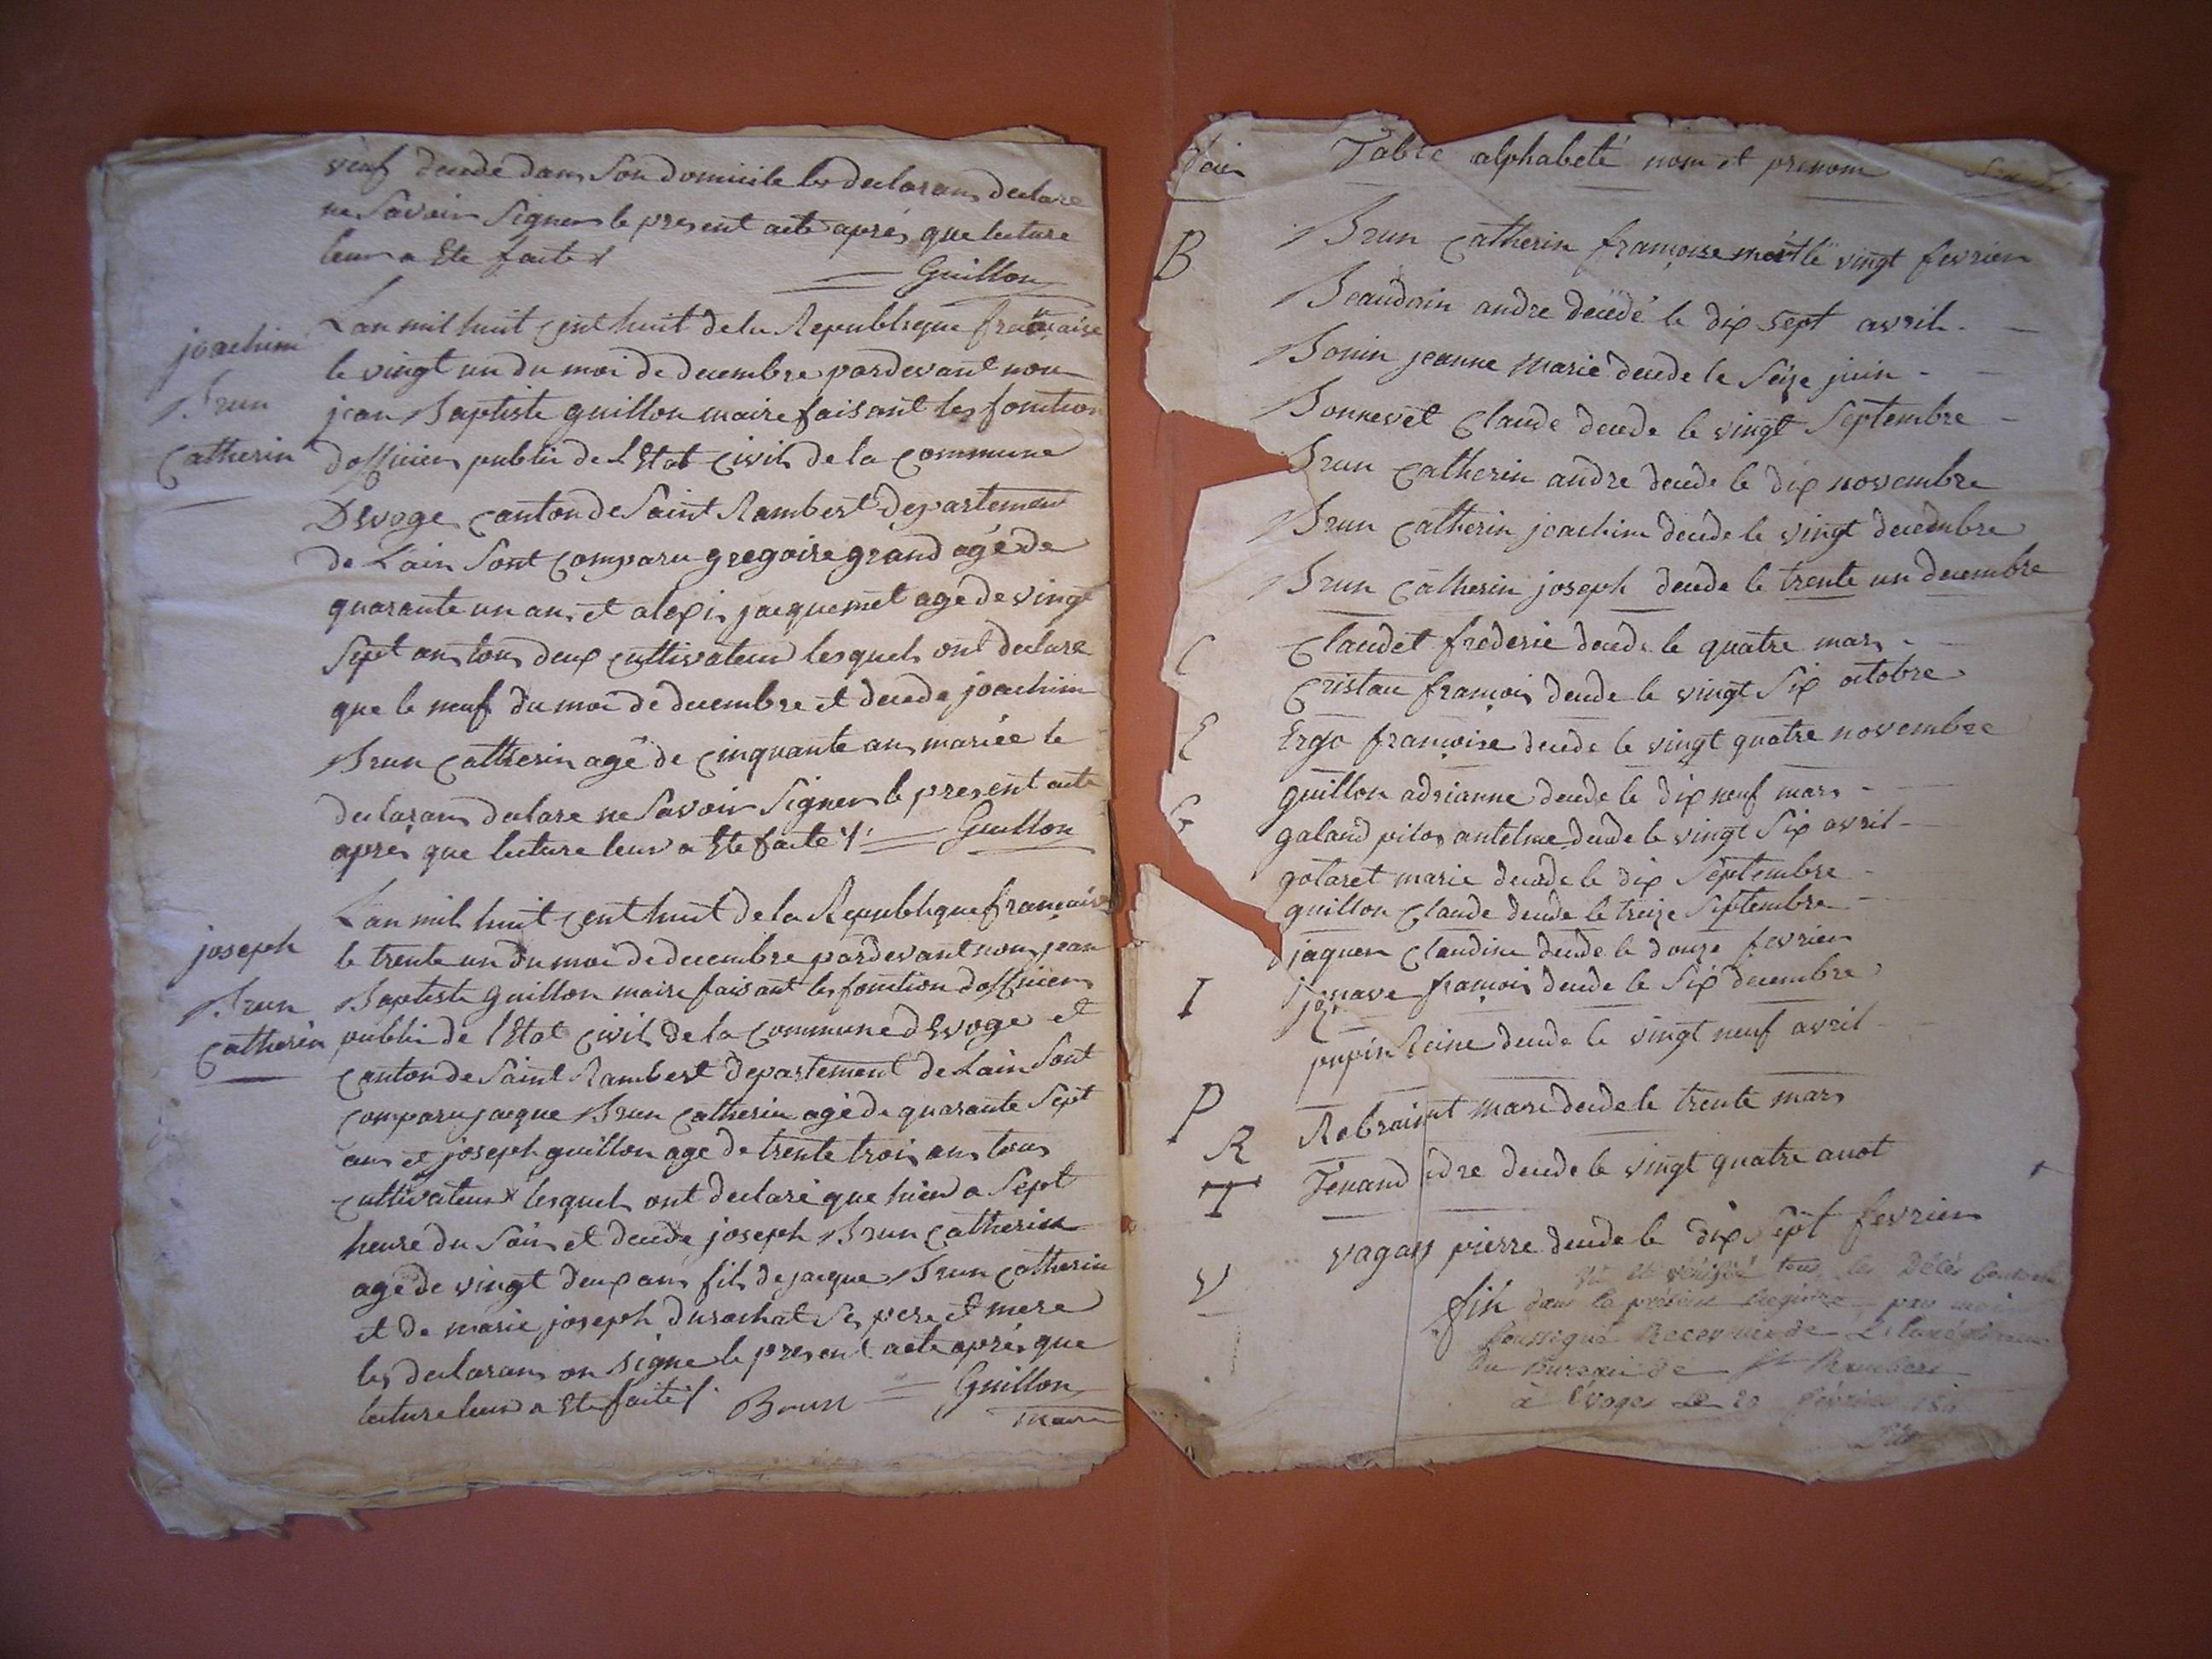 veuf decede dans son domicile les declarans declare
ne savoir signer le present acte après que lecture
leur a Ete faite
Guillon
joachim
Brun
Catherin
L'an mil huit cent huit de la Republique française
le vingt un du moi de decembre pardevant nou
jean Baptiste guillon maire faisant les fonction
dofficier public de l'Etat Civil de la Commune
DEvoge Canton de Saint Rambert departement
de Lain sont comparu gregoire grand agé de
quarante un an et alexis jacquemet age de vingt
sept ans tous deux cultivateur lesquels ont declare
que le neuf du moi de decembre et decede joachim
Brun Catherin agé de cinquante ans mariée le
declarans declare ne savoir signer le present acte
après que lecture leur a Ete faite Guillon
joseph
Brun
Catherin
L'an mil huit cent huit de la Republique française
le trente un du moi de decembre pardevant nous jean
Baptiste guillon maire faisant les fonction dofficier
public de l'Etat Civil de la Commune dEvoge et
Canton de Saint Rambert departement de Lain sont
comparu jacque Brun Catherin agé de quarante sept
ans et joseph guillon age de trente trois ans tous
cultivateur lesquels ont declaré que hier a sept
heure du soir et decede joseph Brun Catherin
agé de vingt deux ans fils de jacque Brun Catherin
et de marie joseph durochat ses pere et mere
les declarans on signe le present acte après que
lecture leur a Ete faite Brun Guillon
maire
Table alphabeté nom et prenom
B Brun Catherin françoise mort le vingt fevrier
Beaudoin andre decedé le dix sept avril
Bonin jeanne Marie decede le seize juin
Bonnevet Claude decede le vingt septembre
Brun Catherin andre decede le dix novembre
Brun Catherin joachim decede le vingt decembre
Brun Catherin joseph decede le trente un decembre
C Claudet frederic decede le quatre mars
Cristau françois decede le vingt six octobre
E Ergo françoise decede le vingt quatre novembre
G guillon adrianne decede le dix neuf mars
galand pilos antelme decede le vingt six avril
gotaret marie decede le dix septembre
guillon Claude decede le treize septembre
jaquen Claudine decede le douze fevrier
I françois decede le six decembre
P pupin Reine decede le vingt neuf avril
R Marie decede le trente mars
T Tenand decede le vingt quatre auot
V vagon pierre decede le dix sept fevrier
fin
Vu et vérifié tous les Décès
dans la présente Registre par moi
soussigné Receveur de
du Bureau de St Rambert
à Evoges le 20 février